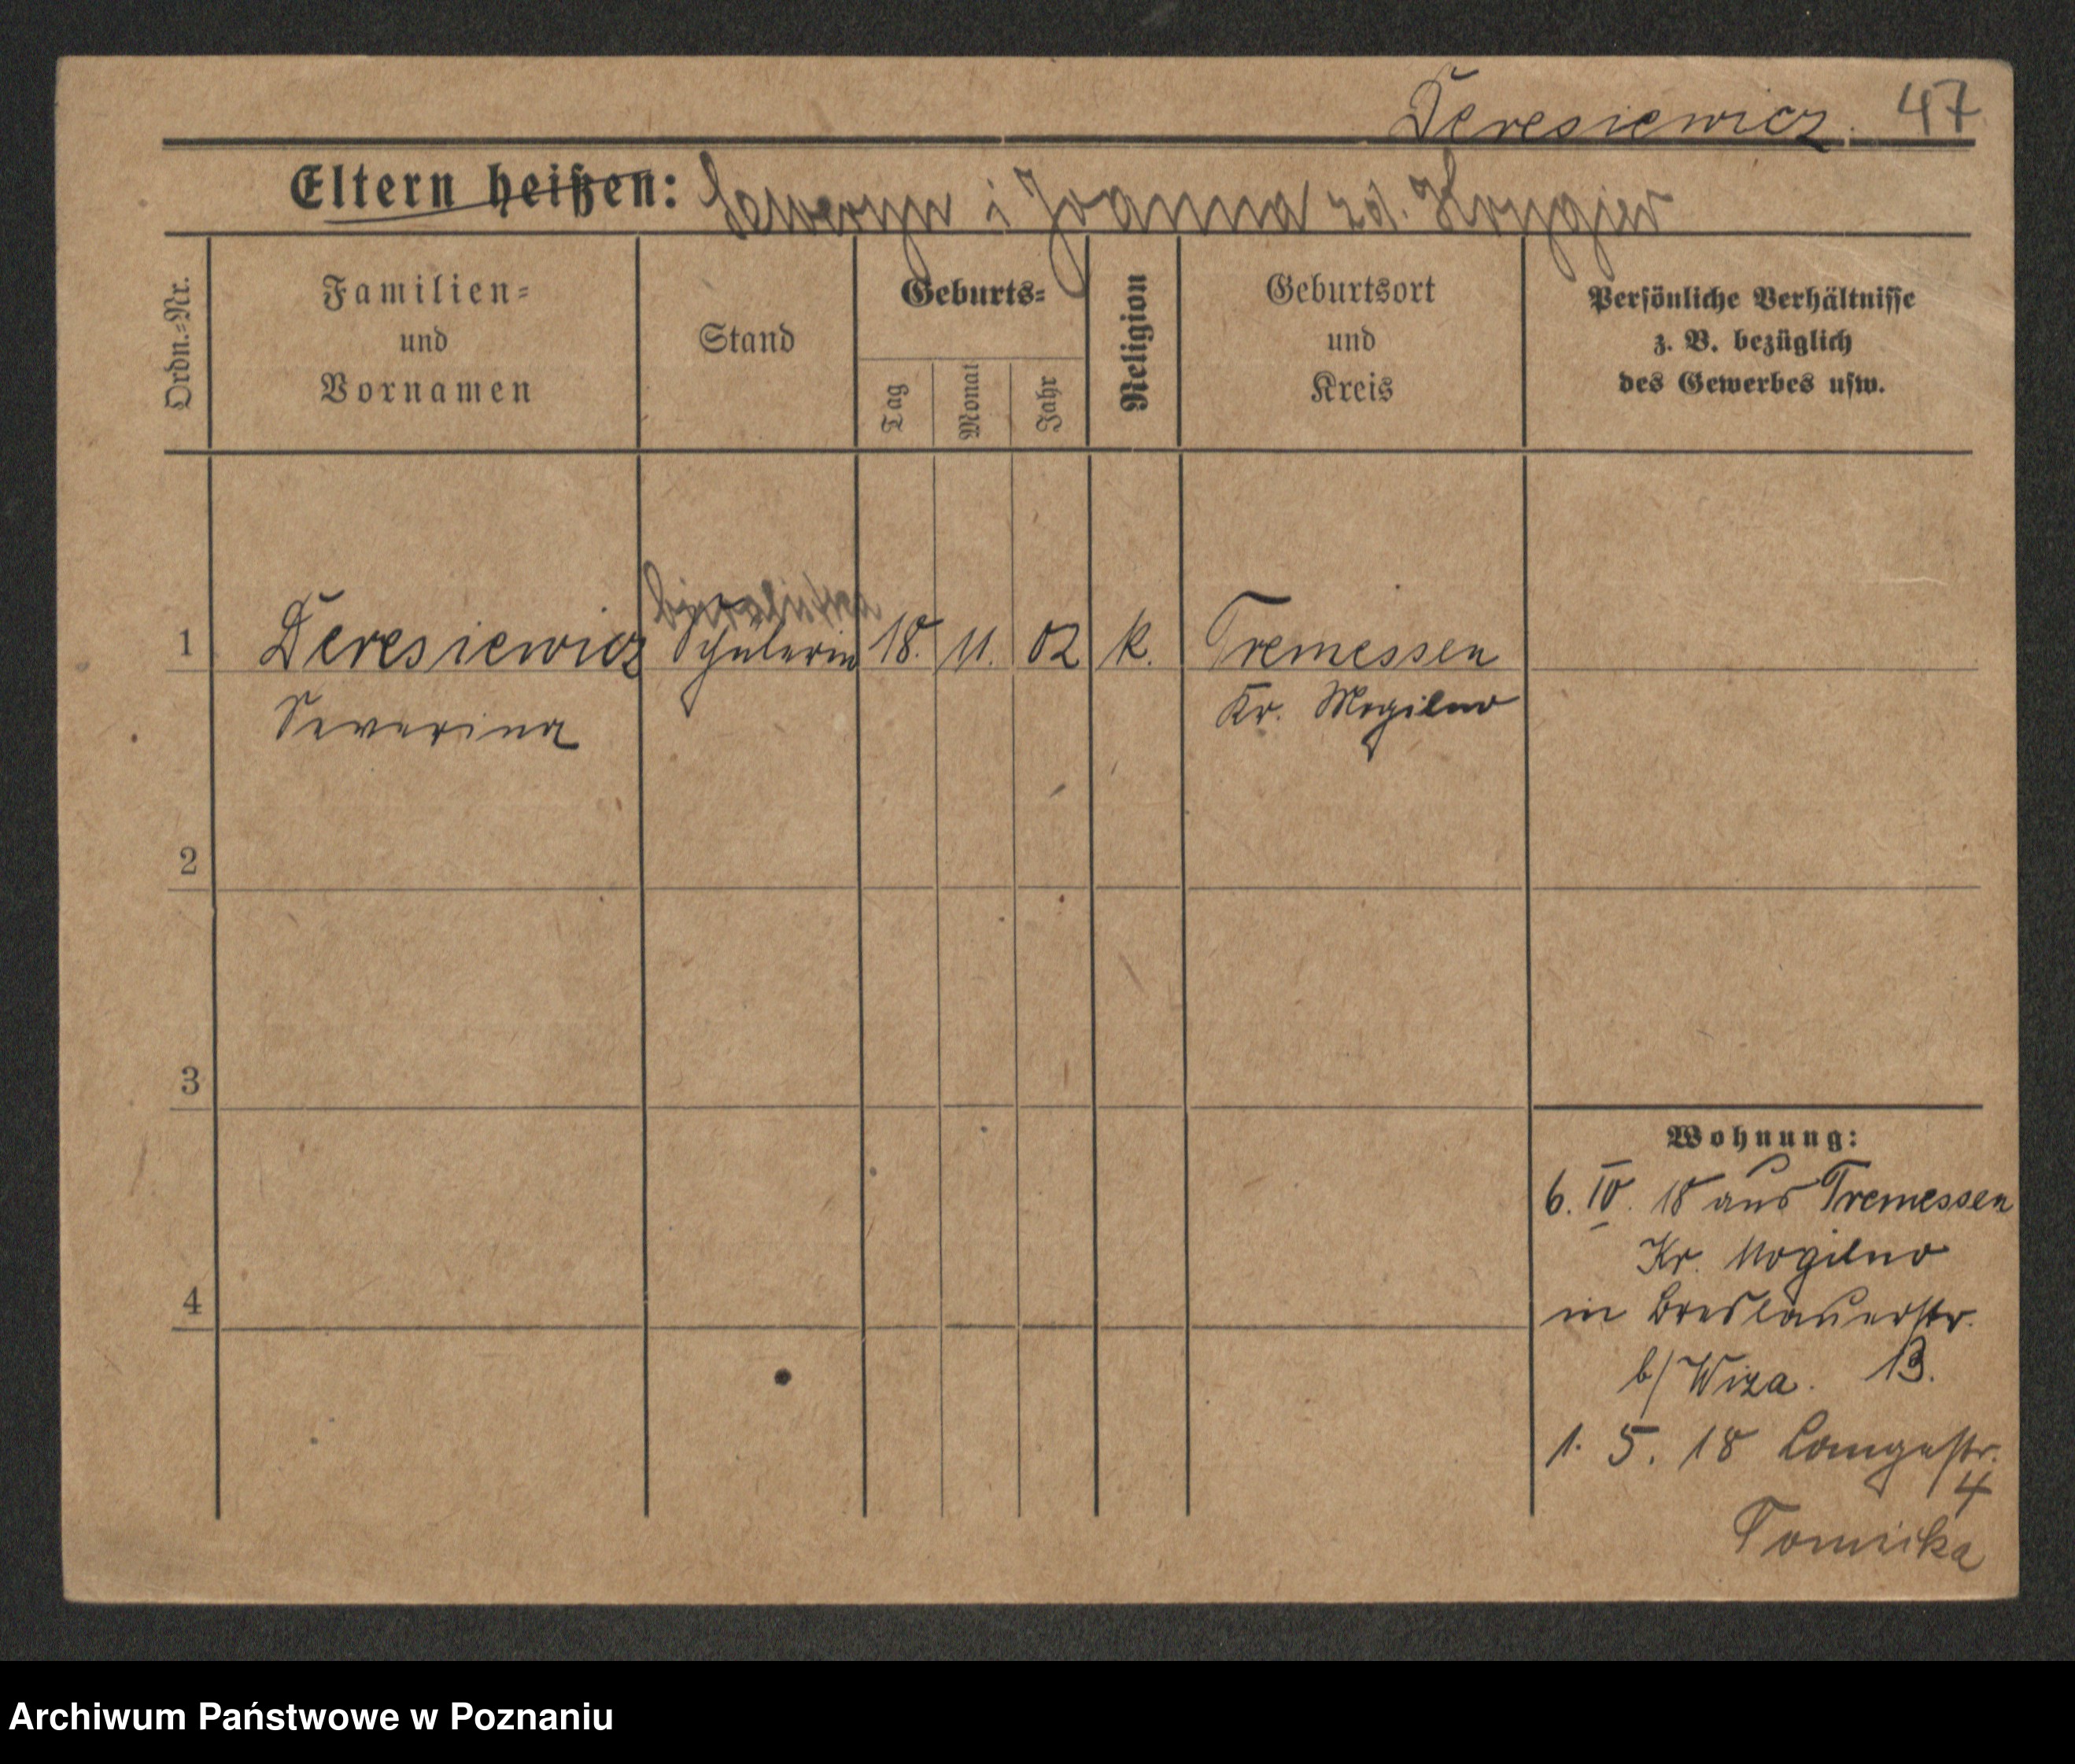 Deresiewicz. 47
Eltern heißen: Seweryn i Joanna zd. Krygier
Ordn.-Nr.
Familien-
und
Vornamen
Stand
Geburts-
Tag
Monat
Jahr
Religion
Geburtsort
und
Kreis
Persönliche Verhältnisse
z. B. bezüglich
des Gewerbes usw.
1 Deresiewicz Schülerin 18. 11. 02 k. Tremessen
Severina Kr. Mogilno
2
3
4
Wohnung:
6. IV. 18 aus Tremessen
Kr. Mogilno
in Breslauerstr.
b/ Wiza. 13.
1. 5. 18 Langestr.
4
Tomicka
Archiwum Państwowe w Poznaniu